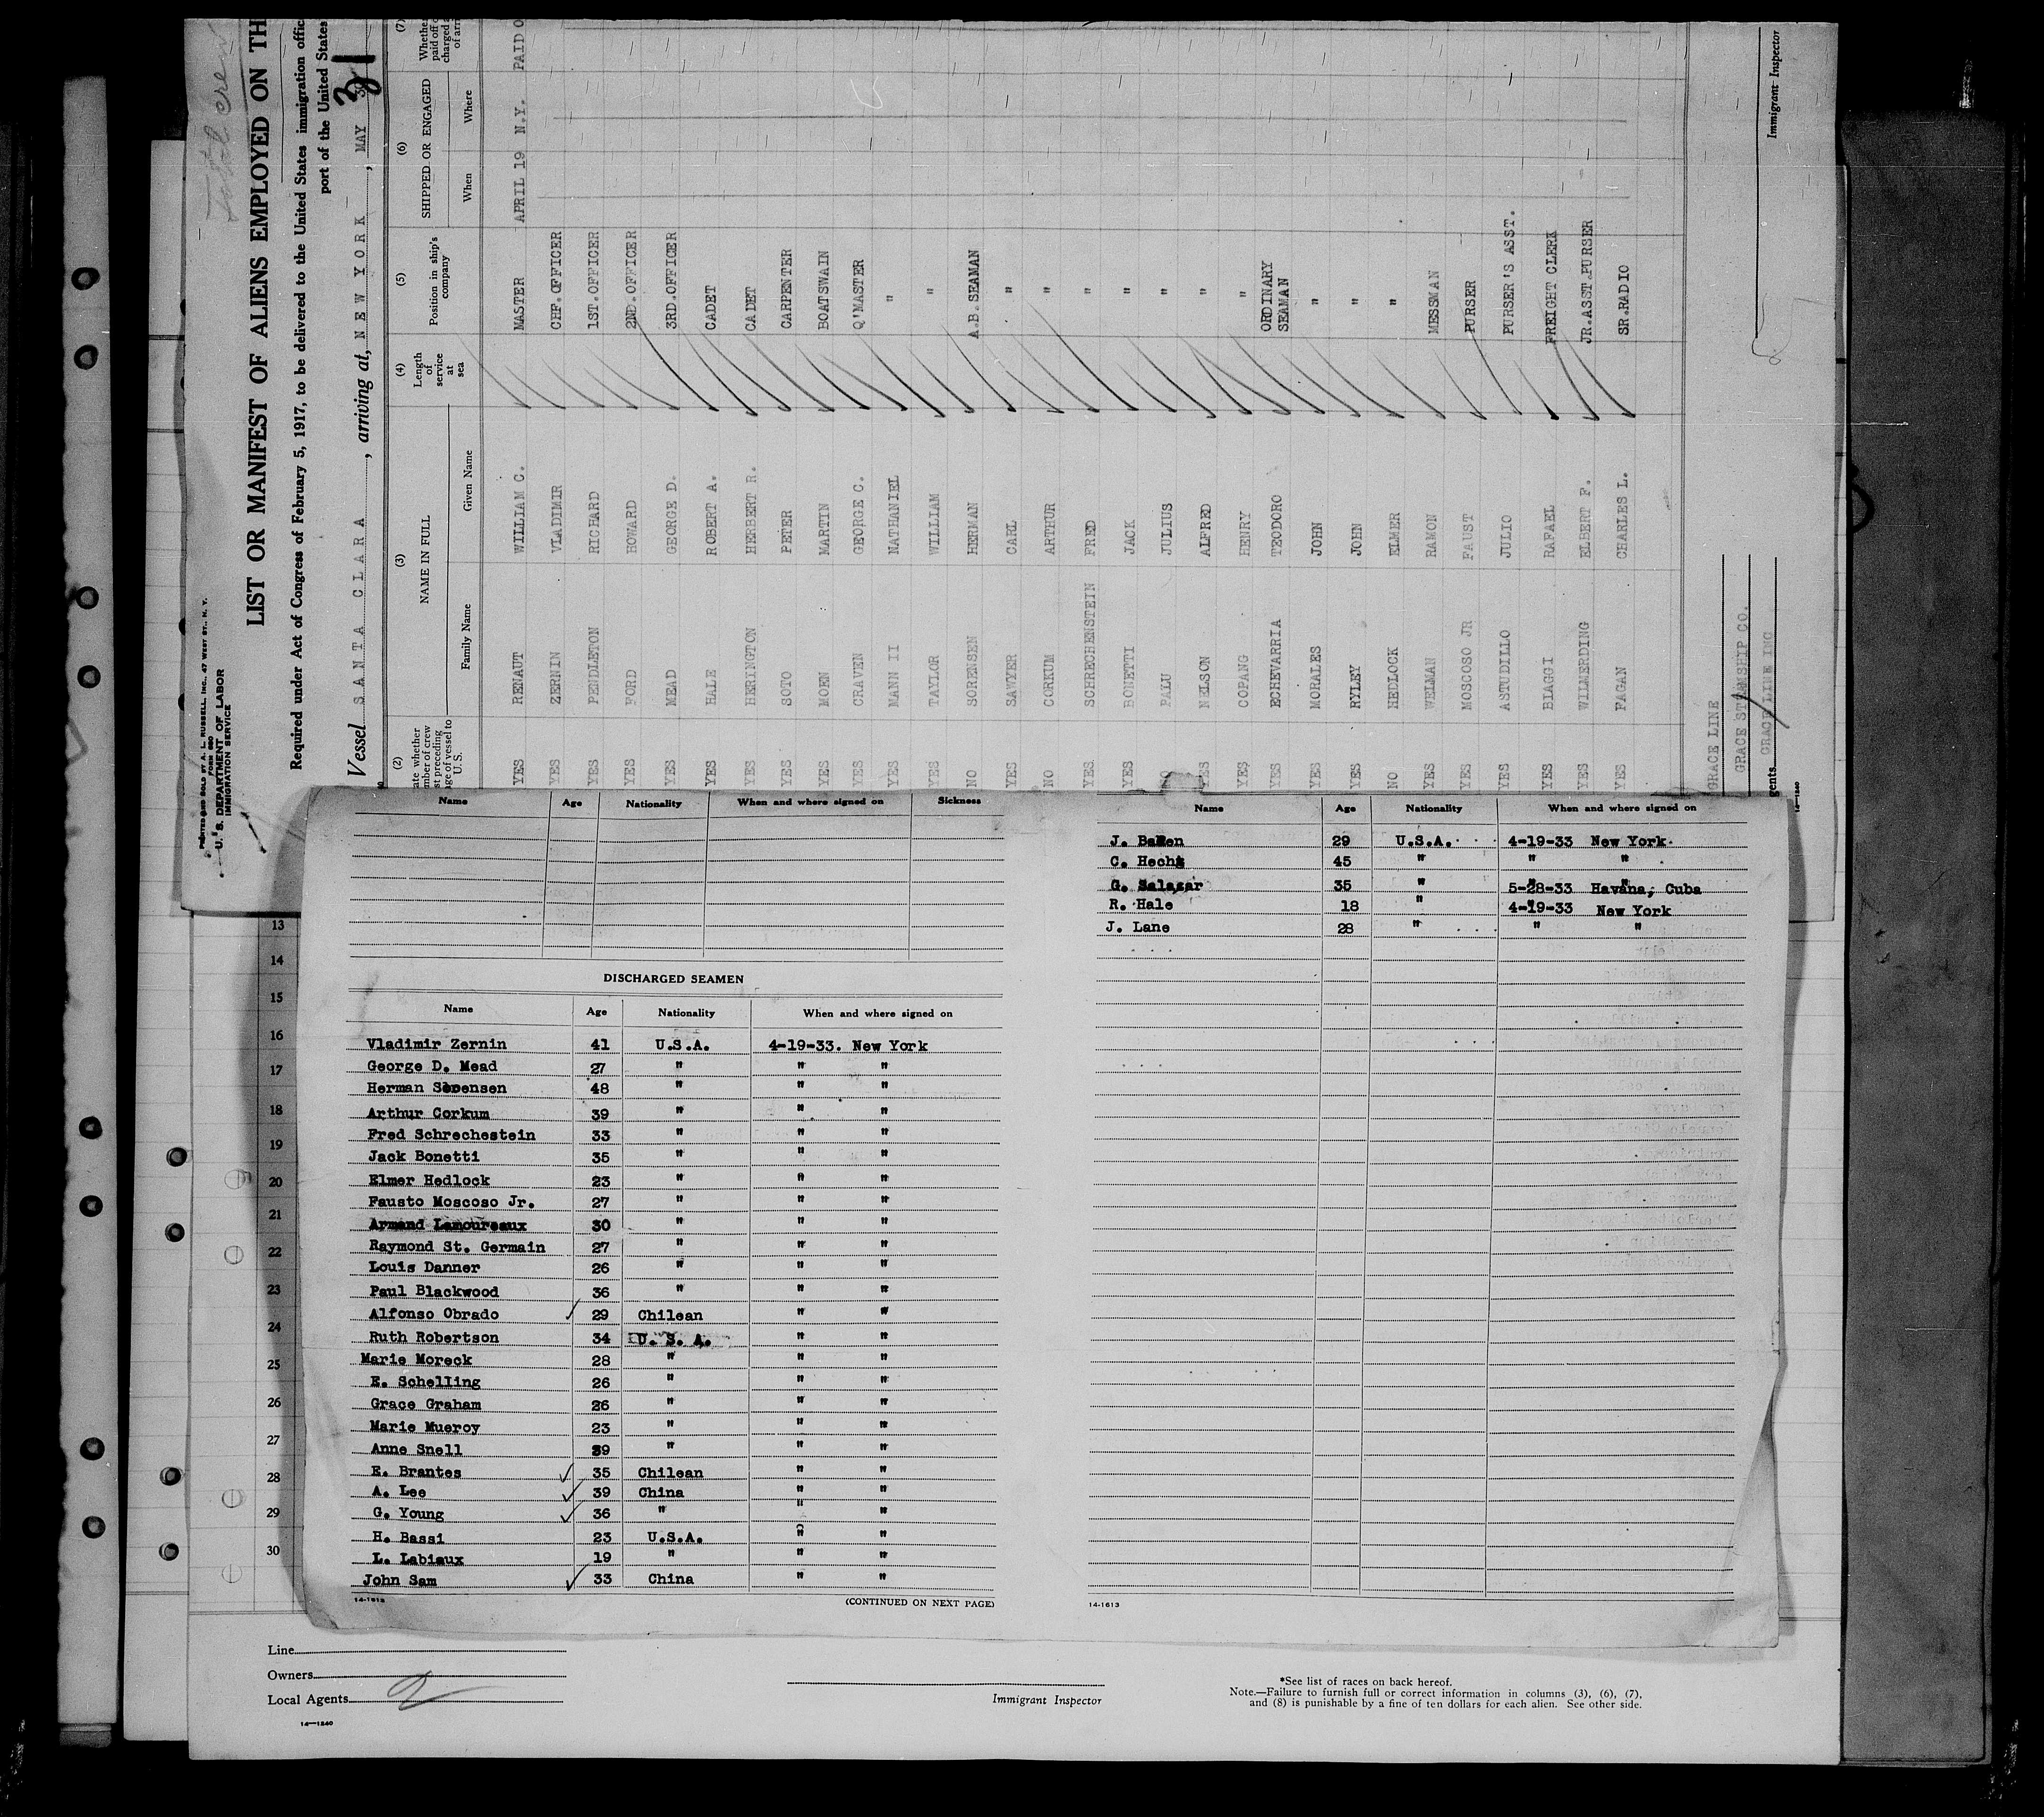 PRINTED AND SOLD BY A. L. RUSSELL, INC., 47 WEST ST., N. Y.
FORM 680
U. S. DEPARTMENT OF LABOR
IMMIGRATION SERVICE
Total crew
LIST OR MANIFEST OF ALIENS EMPLOYED ON TH
Required under Act of Congress of February 5, 1917, to be delivered to the United States immigration offic
port of the United States
Vessel SANTA CLARA, arriving at, NEW YORK, MAY 31
(2) (3) (4) (5) (6) (7)
NAME IN FULL Length of service at sea Position in ship's company SHIPPED OR ENGAGED
Family Name Given Name When Where
YES RENAUT WILLIAM C. MASTER APRIL 19 N.Y. PAID O
YES ZERNIN VLADIMIR CHF.OFFICER
YES PENDLETON RICHARD 1ST.OFFICER
YES FORD HOWARD 2ND.OFFICER
YES MEAD GEORGE D. 3RD.OFFICER
YES HALE ROBERT A. CADET
YES HERINGTON HERBERT R. CADET
YES SOTO PETER CARPENTER
YES MOEN MARTIN BOATSWAIN
YES CRAVEN GEORGE C. Q'MASTER
YES MANN II NATHANIEL "
YES TAYLOR WILLIAM "
NO SORENSEN HERMAN A.B.SEAMAN
YES SAWYER CARL "
NO CORKUM ARTHUR "
YES SCHRECHENSTEIN FRED "
YES BONETTI JACK "
PALU JULIUS "
YES NELSON ALFRED "
YES COPANG HENRY "
YES ECHEVARRIA TEODORO ORDINARY SEAMAN
YES MORALES JOHN "
YES RYLEY JOHN "
NO HEDLOCK ELMER "
YES WELMAN RAMON MESSMAN
YES MOSCOSO JR FAUST PURSER
YES ASTUDILLO JULIO PURSER'S ASST.
YES BIAGGI RAFAEL FREIGHT CLERK
YES WILMERDING ELBERT F. JR.ASST.PURSER
YES FAGAN CHARLES L. SR.RADIO
GRACE LINE
GRACE STEAMSHIP CO.
gents GRACE LINE INC
Immigrant Inspector
14-1240
Name Age Nationality When and where signed on Sickness
DISCHARGED SEAMEN
Name Age Nationality When and where signed on
Vladimir Zernin 41 U.S.A. 4-19-33. New York
George D. Mead 27 " " "
Herman Sorensen 48 " " "
Arthur Corkum 39 " " "
Fred Schrechestein 33 " " "
Jack Bonetti 35 " " "
Elmer Hedlock 23 " " "
Fausto Moscoso Jr. 27 " " "
Armand Lamoureaux 30 " " "
Raymond St. Germain 27 " " "
Louis Danner 26 " " "
Paul Blackwood 36 " " "
Alfonso Obrado 29 Chilean " "
Ruth Robertson 34 U. S. A. " "
Marie Moreck 28 " " "
E. Schelling 26 " " "
Grace Graham 26 " " "
Marie Mueroy 23 " " "
Anne Snell 39 " " "
E. Brantes 35 Chilean " "
A. Lee 39 China " "
G. Young 36 " " "
H. Bassi 23 U.S.A. " "
L. Labiaux 19 " " "
John Sam 33 China " "
14-1613
(CONTINUED ON NEXT PAGE)
Name Age Nationality When and where signed on
J. 29 U.S.A. 4-19-33 New York
C. Hecht 45 " " "
G. Salazar 35 " 5-28-33 Havana, Cuba
R. Hale 18 " 4-19-33 New York
J. Lane 28 " " "
14-1613
13
14
15
16
17
18
19
20
21
22
23
24
25
26
27
28
29
30
Line
Owners
Local Agents
14-1240
Immigrant Inspector
*See list of races on back hereof.
Note.—Failure to furnish full or correct information in columns (3), (6), (7),
and (8) is punishable by a fine of ten dollars for each alien. See other side.